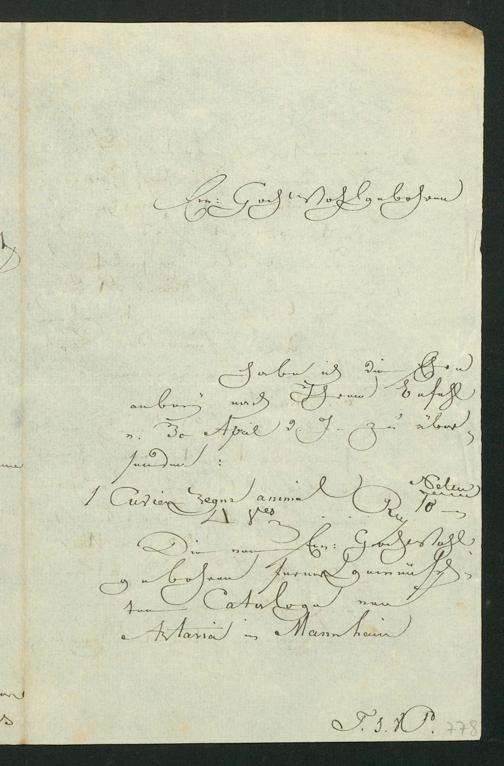 Ew: Hochwohlgebohren
habe ich die Ehre
anbey nach Ihrem Befehl
v. 30 April d. J. zu über
senden :
1 Cuvier Regne animal
4 Netto
10 —
Die von Ew: Hochwohl
gebohren ferner gewünsch
ten Cataloge von
Artaria in Mannheim
778